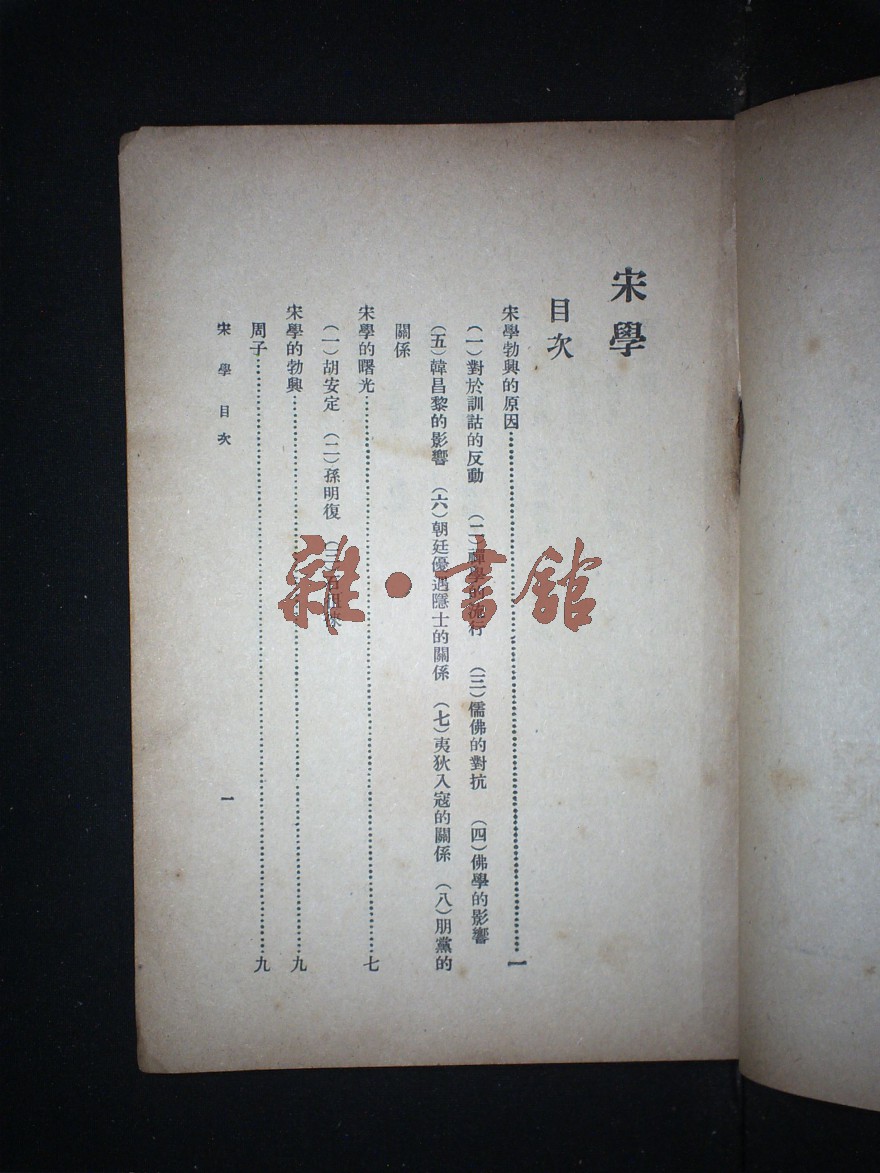 宋學
目次
宋學勃興的原因……一
（一）對於訓詁的反動 （二）禪學的流行 （三）儒佛的對抗 （四）佛學的影響
（五）韓昌黎的影響 （六）朝廷優遇隱士的關係 （七）夷狄入寇的關係 （八）朋黨的
關係
宋學的曙光……七
（一）胡安定 （二）孫明復 （三）石徂徠
宋學的勃興……九
周子……九
宋學目次
一
雜·書館